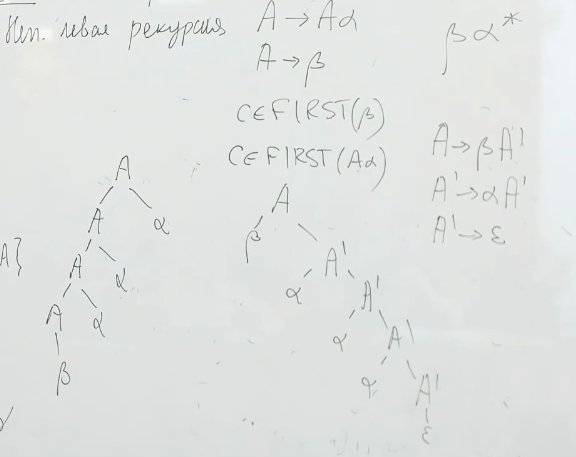 Неп. левая рекурсия A → Aα
A → β
βα*
C ∈ FIRST(β)
C ∈ FIRST(Aα)
A → βA'
A' → αA'
A' → ε
A
A α
A α
A α
β
A}
A
β A'
α A'
α A'
α A'
ε